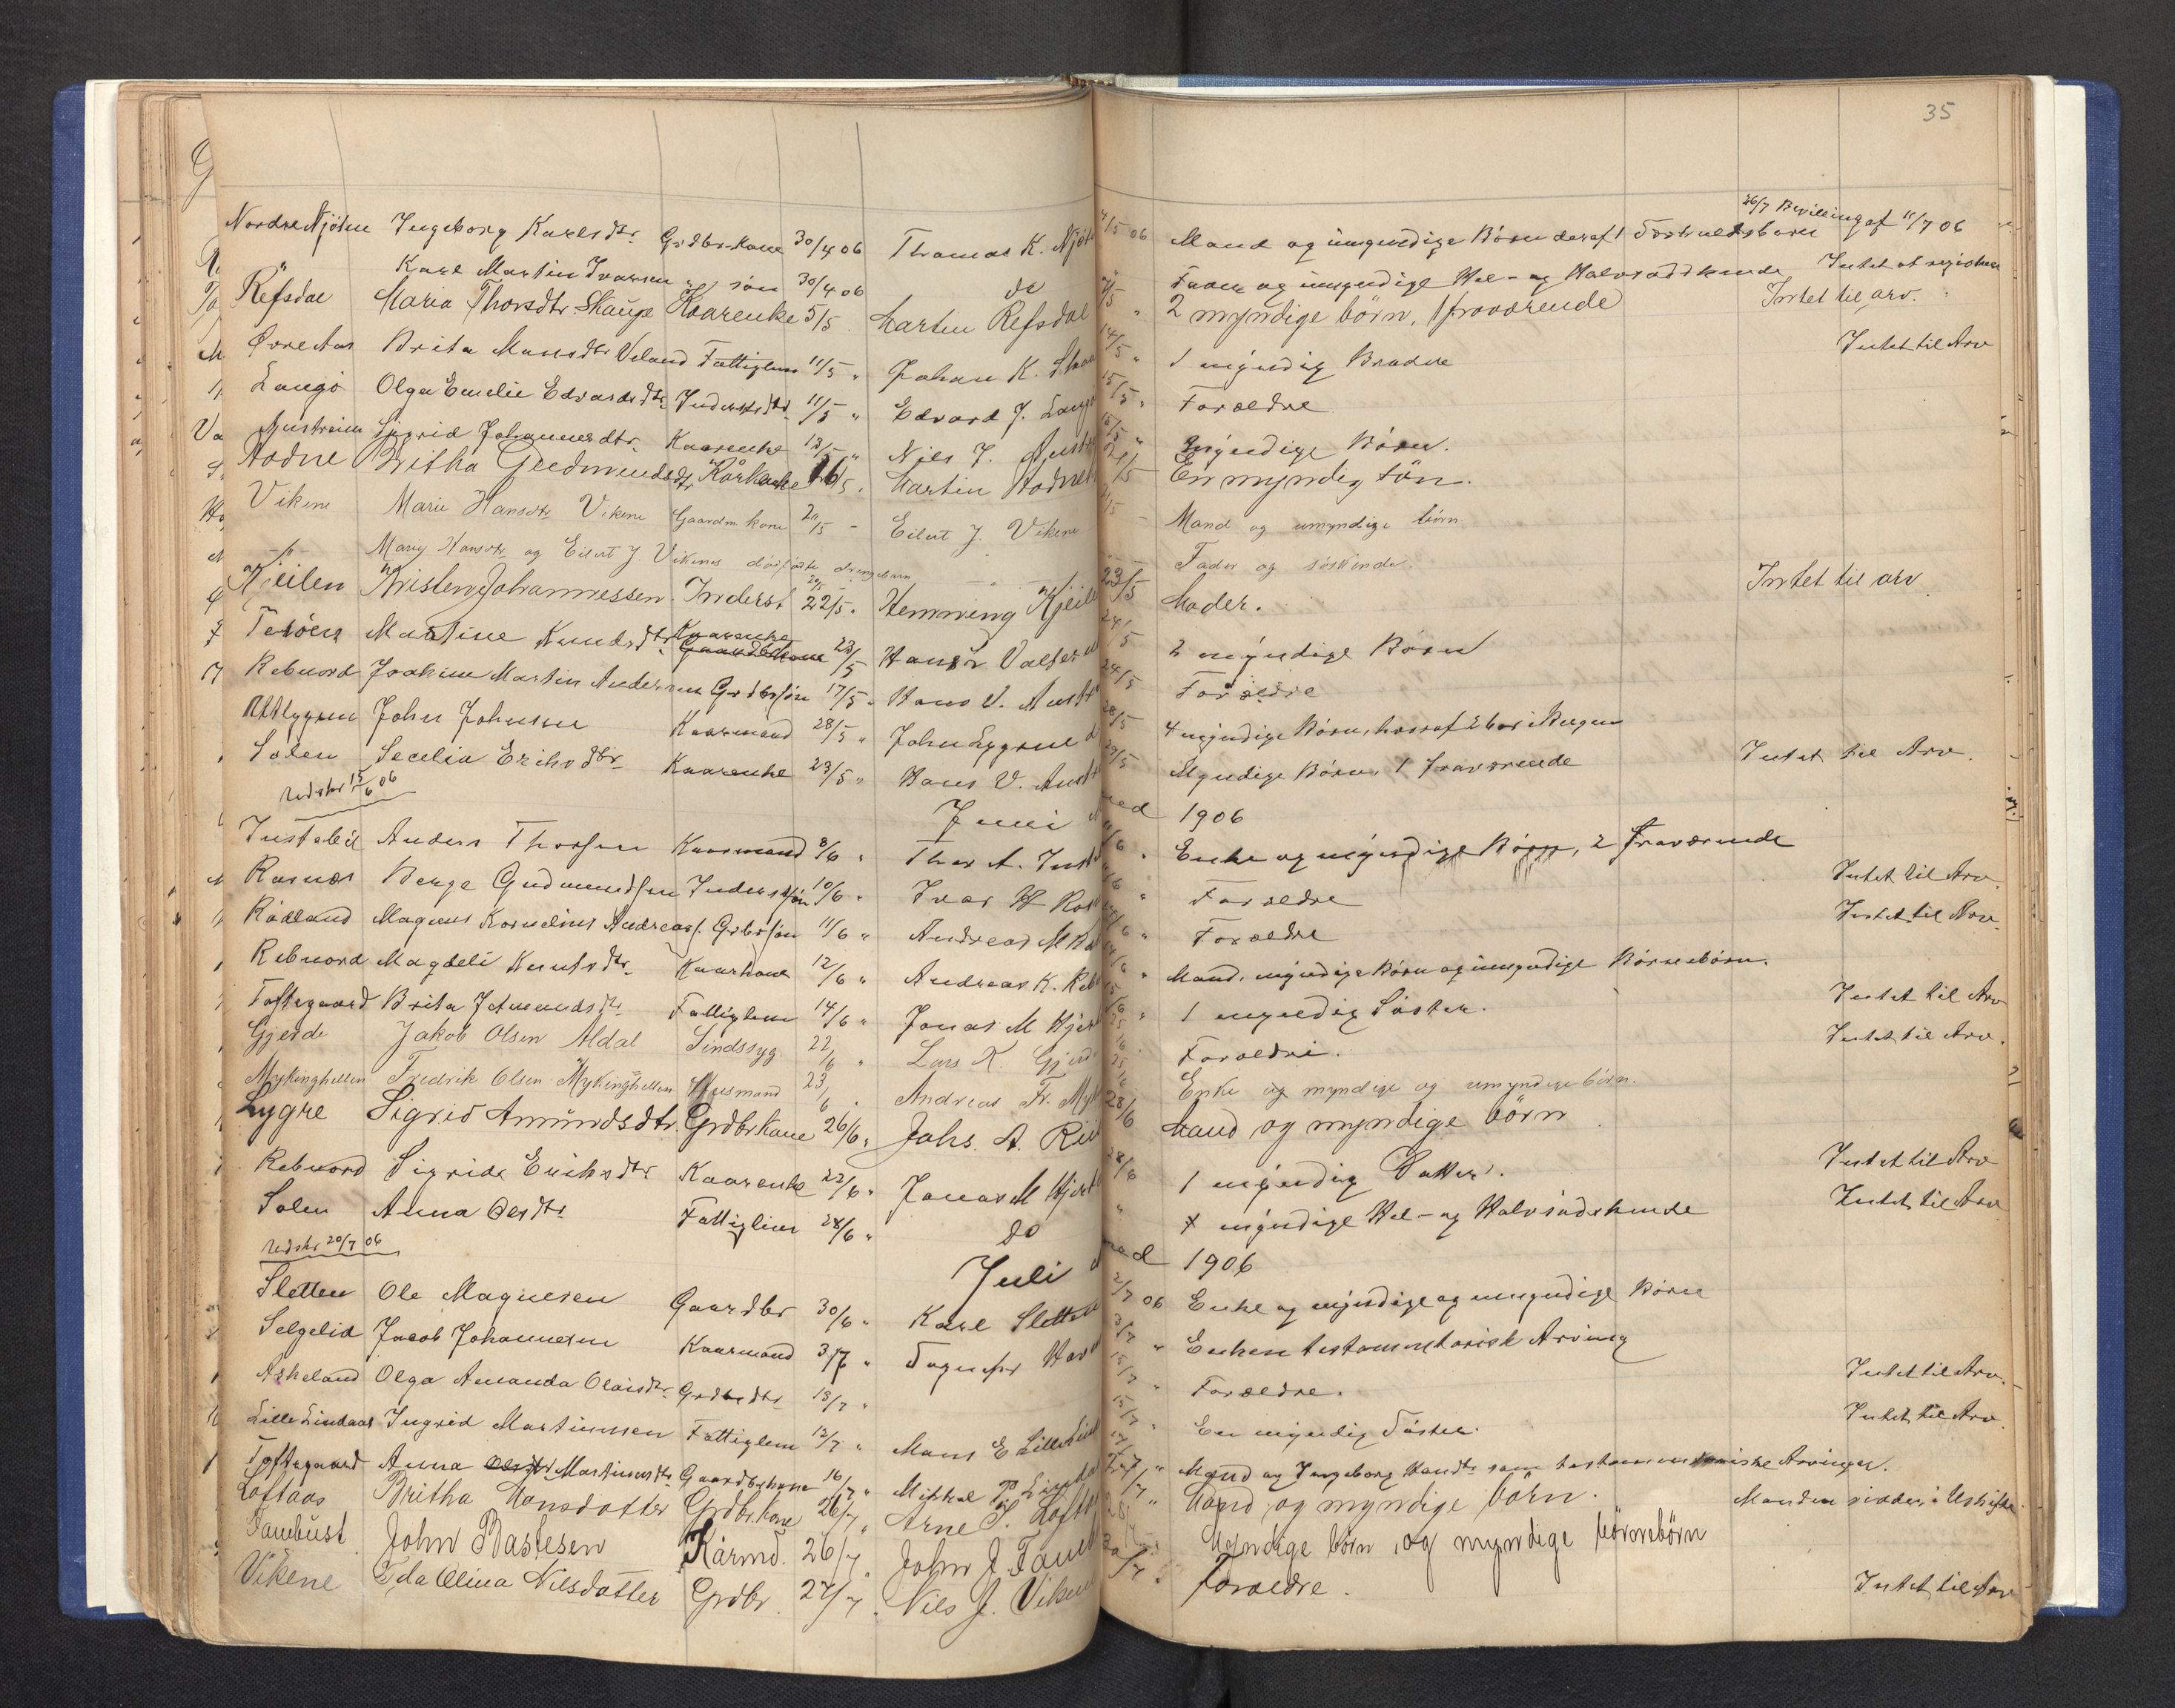 35
Nordre Njøten Ingeborg Karlsdtr. Grdbr.kone 30/4 06 Thomas K. Njøt 4/5 06 Mand og umyndige Børn deraf 1 26/7 Bevilling af 11/7 06
Karl Martin Ivarsen " søn 30/4 06 do Fader og umyndige Hel- og Halvsødskende Intet at registrere
Refsdal Maria Thorsdtr. Skauge Kaarenke 5/5 Martin Refsdal 7/5 " 2 myndige børn, 1 fraværende Intet til arv.
Øvre Aas Brita Monsdtr Veland Fattiglem 11/5 " Johan K. 14/5 " 1 myndig Broder Intet til Arv
Langø Olga Emelie Edvardsdtr. Inderstdtr. 11/5 " Edvard J. Langø 15/5 " Forældre
Austreim Sigrid Johannesdtr. Kaarenke 13/5 " Nils J. Aust 15/5 " myndige Børn.
Hodne Britha Gudmundsdtr Kårkone 16/5 " Martin Hodne 21/5 En myndig søn.
Vikene Marie Hansdtr. Vikene Gaardm. kone 20/5 - Eilert J. Vikene /5 - Mand og umyndige børn
-"- Marie Hansdtr. og Eilert J. Vikenes dødfødte drengebarn 20/5 Fader og søskende.
Kjeilen Kristen Johannessen Inderst 22/5 " Hemming Kjeile 23/5 Moder. Intet til arv
Martine Knudsdtr. Kaarenke Gaardbrkone 23/5 Hans V. 24/5 2 myndige Børn
Rebnord Joakim Martin Andersen Grdbrsøn 17/5 " Hans V. Aust 24/5 Forældre
Utlygren John Johnsen Kaarmand 28/5 " John Lygren 28/5 4 myndige Børn, hvoraf 2 bor i Bergen
Solen Secelia Eriksdtr. Kaarenke 23/5 " Hans V. Aust 29/5 Myndige Børn, 1 fraværende Intet til Arv.
Udskr 15/6 06
Juni 1906
Instebø Anders Thorsen Kaarmand 8/6 " Thor A. Inst /6 " Enke og myndige Børn, 2 fraværende
Rosnæs Berge Gudmundsen Inderstsøn 10/6 " Ivar Ros /6 " Forældre Intet til Arv.
Rødland Magnus Kornelius Andreas. Grbrsøn 11/6 " Andreas M /6 " Forældre Intet til Arv.
Rebnord Magdeli Knutsdtr. Kaarkone 12/6 " Andreas K. Reb /6 " Mand, myndige Børn og umyndige Børnebørn.
Toftegaard Brita Fattiglem 14/6 " Jonas M Hjert 15/6 " 1 myndig Søster. Intet til Arv
Gjerde Jakob Olsen Aldal Sindssyg 22/6 " Lars K. Gjerde 25/6 Forældre. Intet til Arv.
Mykinghellen Fredrik Olsen Mykinghellen Husmand 23/6 " Andreas Fr. Myk 25/6 Enke og myndige og umyndige børn.
Lygre Sigrid Amundsdtr. Grdbrkone 26/6 " Johs. A. 28/6 Mand og myndige børn
Rebnord Sigride Eriksdtr Kaarenke 22/6 " Jonas M Hjert 28/6 1 myndig Datter. Intet til Arv
Solen Anna Olesdtr Fattiglem 28/6 " do " myndige Hel- og Halvsødskende Intet til Arv
Udskr 20/7 06
Juli 1906
Sletten Ole Magnesen Gaardbr 30/6 " Karl Sletten 2/7 06 Enke og myndige og umyndige Børn
Selgelid Jacob Johannesen Kaarmand 3/7 " 3/7 " Enken testamentarisk Arving
Askeland Olga Amanda Olaisdtr. Grdbrdtr 13/7 " 15/7 " Forældre. Intet til Arv.
Lille Lindaas Ingrid Martinusen Fattiglem 12/7 " Mons E Lille Lind 15/7 " En myndig Søster. Intet til Arv.
Toftegaard Anna Martinusdtr. Gaardbrkone 16/7 " Mikkal /7 " Mand og Ingeborg som testamentariske Arvinger.
Loftaas Britha Monsdatter Grdbr.kone 26/7 " Arne Lofta /7 " Mand og myndige børn. Manden sidder i Uskifte
Fambust John Rastesen Kårmd. 26/7 " John J. Famb 28/7 Myndige børn og myndige børnebørn
Vikene Ida Olina Nilsdatter Grdbr. 27/7 " Nils J. Viken 30/7 " Forældre. Intet til Arv